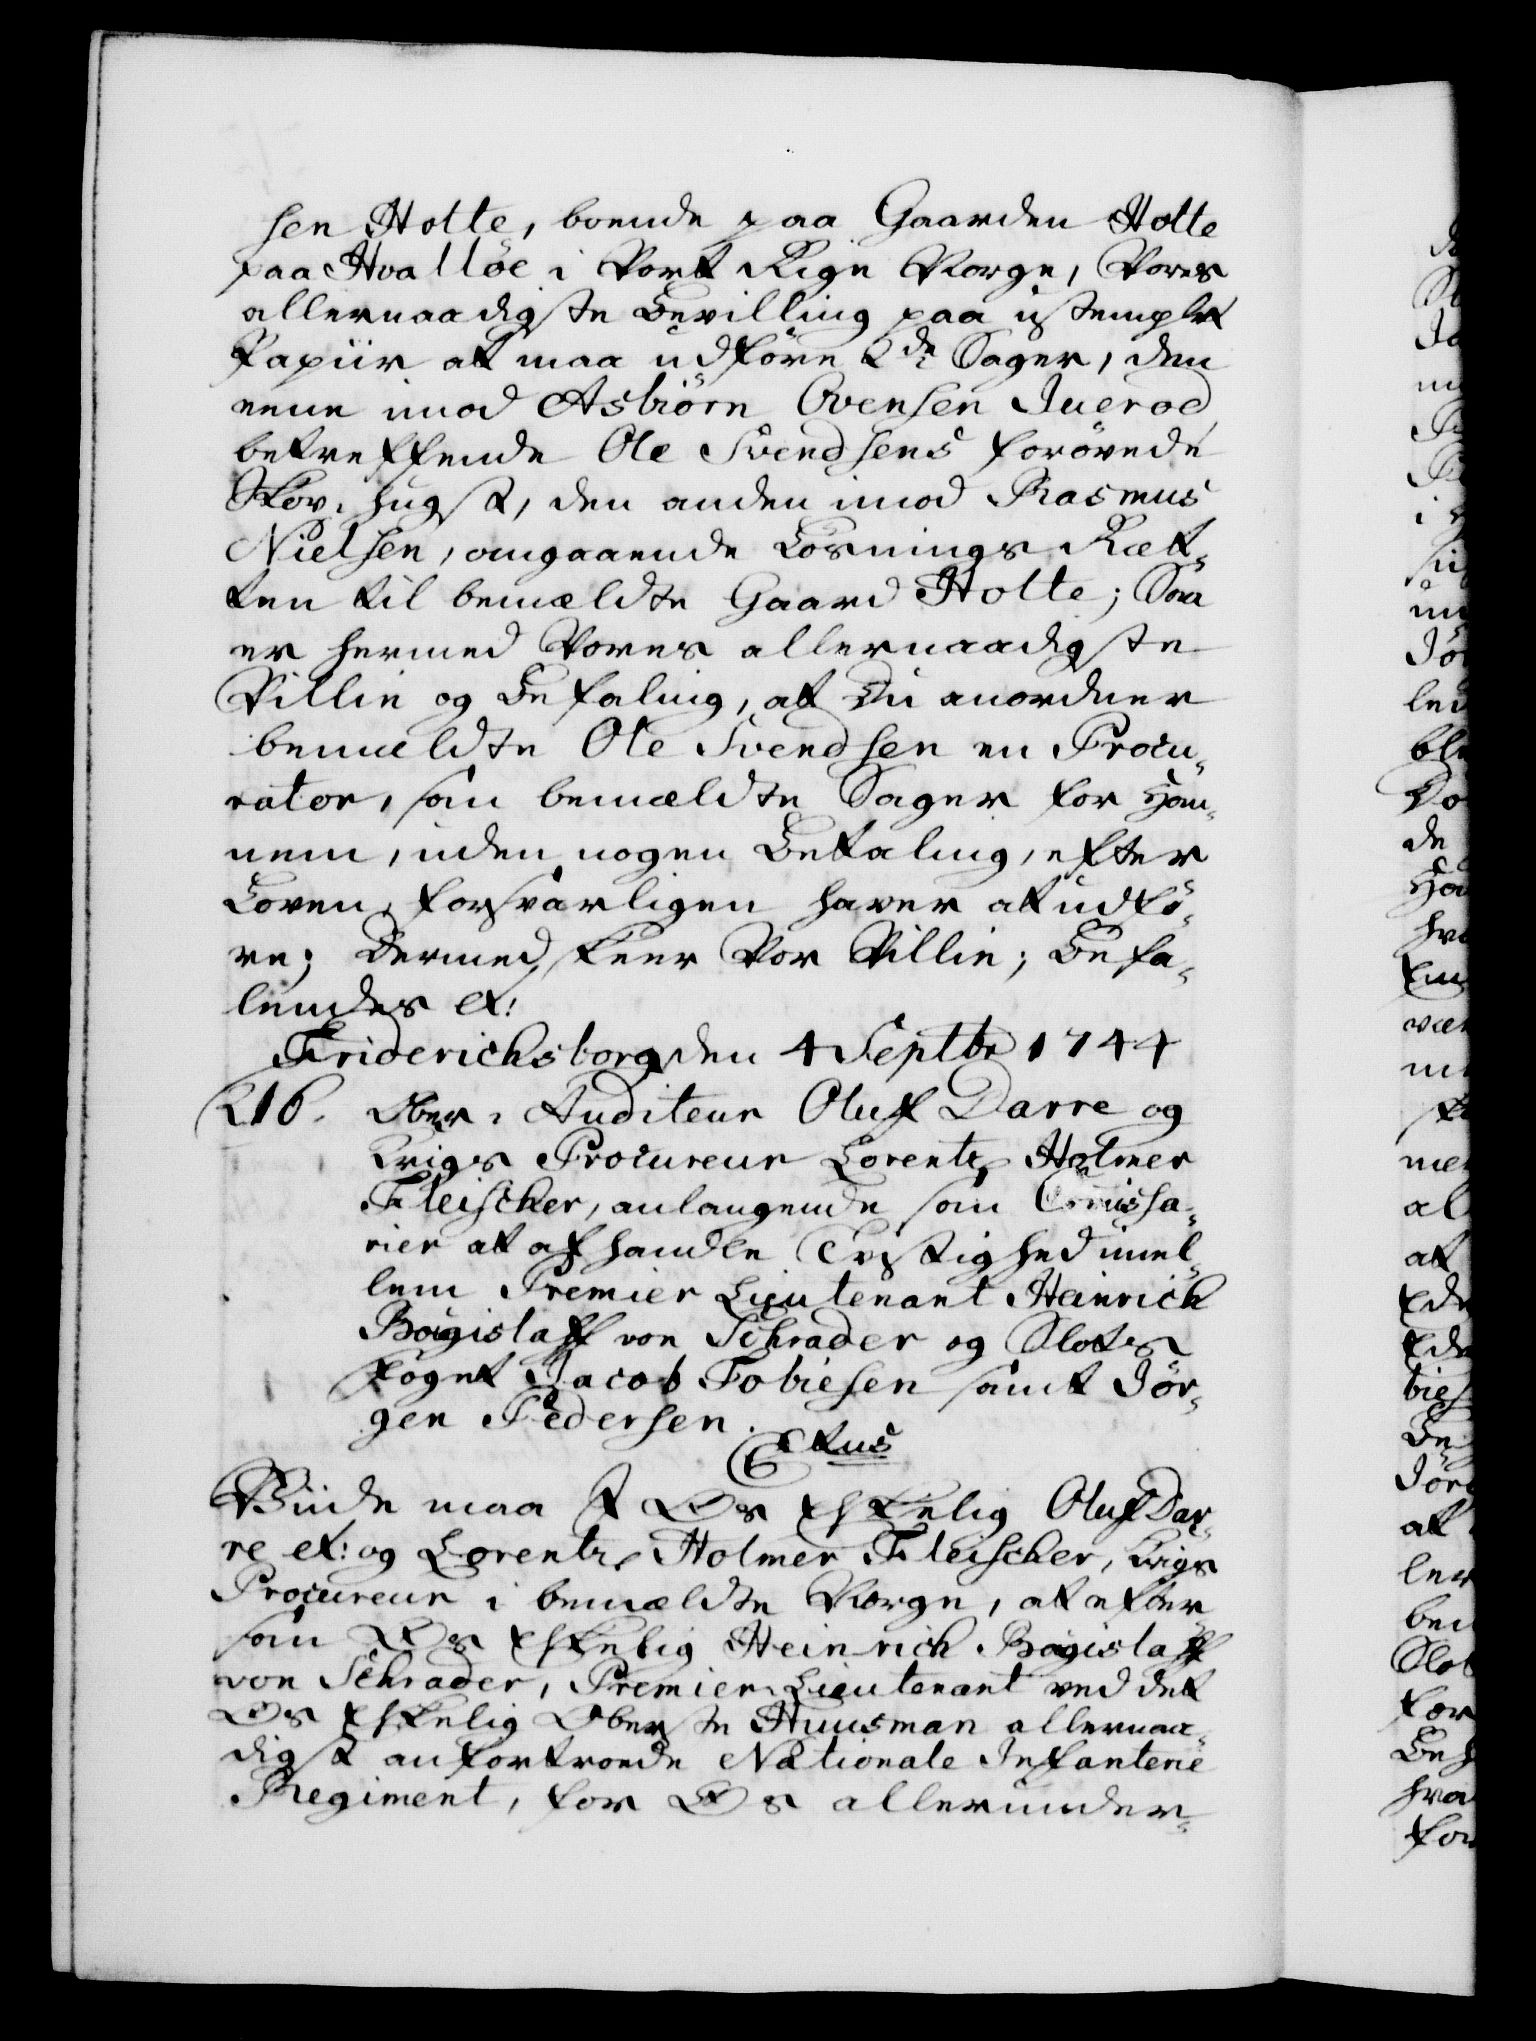 sen Holte, boende paa Gaarden Holte
paa Hvalløe i Vort Rige Norge, Vores
allernaadigste Bevilling paa ustemplet
Papiir at maa udføre 2de Sager, den
eene imod Asbiørn Ovensen Jueroed
betreffende Ole Svendsens forøvede
Skov-hugst, den anden imod Rasmus
Nielsen, angaaende Løsnings Ræt-
ten til bemældte Gaard Holte; Saa
er hermed Vores allernaadigste
Villie og Befaling, at Du anordner
bemældte Ole Svendsen en Procu-
rator, som bemældte Sager for Ham-
nem, uden nogen Betaling, efter
Loven, forsvarligen haver at udfø-
re; Dermed skeer Vor Villie; Befa-
lendes etc:
Friderichsborg den 4 Septbr 1744
216. Ober-Auditeur Oluf Darre og
Krigs Procureur Lorentz Holmer
Fleischer, anlangende som Comissa-
rier at afhandle Tvistighed imel-
lem Premier Lieutenant Heinrich
Bogislaff von Schrader og Slots
Foget Jacob Tobiesen samt Jør-
gen Pedersen.
C6tus
Viide maa I Os Elskelig Oluf Dar-
re etc: og Lorentz Holmer Fleischer, Krigs
Procureur i bemældte Norge, at efter-
som Os Elskelig Heinrich Bogislaff
von Schrader, Premier-Lieutenant ved det
Os Elskelig Oberste Huusman allernaa-
digst anfortroede Nationale Infanterie
Regiment, for Os allerunder-